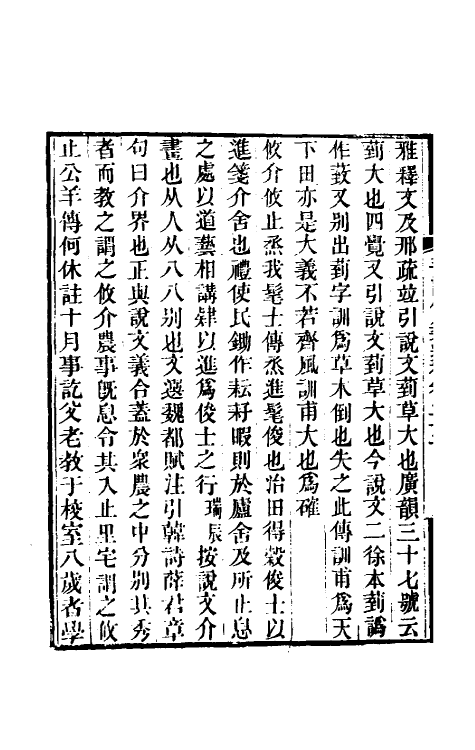 雅釋文及邢疏並引說文菿草大也廣韻三十七號云
菿大也四覺又引說文菿草大也今說文二徐本菿譌
作䓃又別出菿字訓爲草木倒也失之此傳訓甫爲天
下田亦是大義不若齊風訓甫大也爲確
攸介攸止烝我髦士傳烝進髦俊也治田得穀俊士以
進箋介舍也禮使民鋤作耘耔暇則於廬舍及所止息
之處以道藝相講肄以進爲俊士之行瑞辰按說文介
畫也从人从八八別也文選魏都賦注引韓詩薛君章
句曰介界也正與說文義合蓋於衆農之中分別其秀
者而教之謂之攸介農事旣息令其入止里宅謂之攸
止公羊傳何休註十月事訖父老教于校室八歲者學